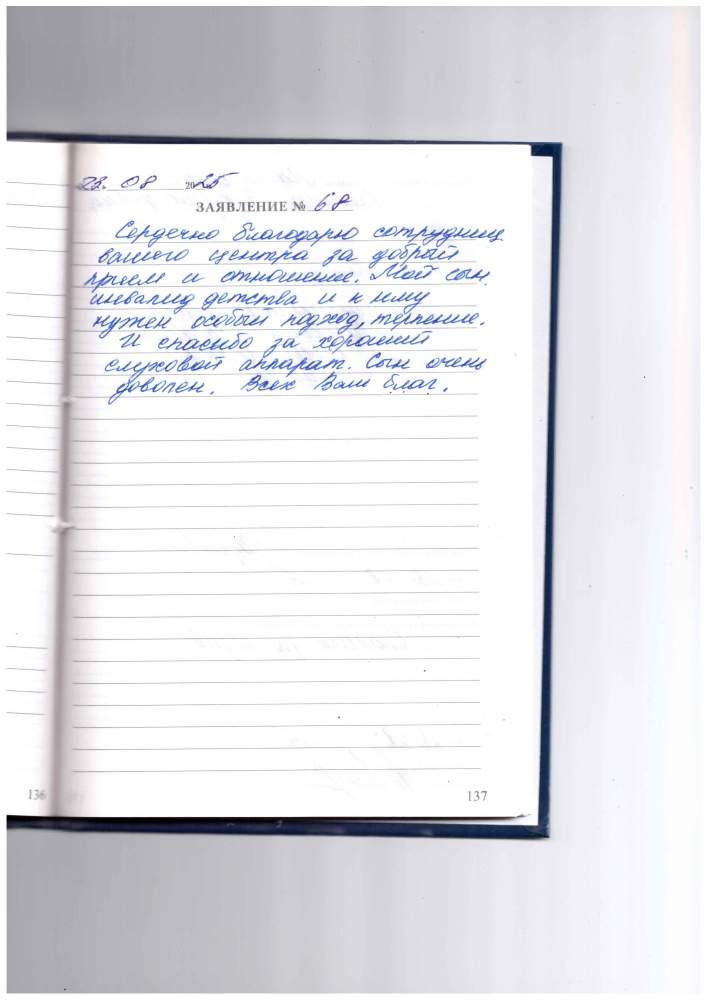 28. 08 2025
ЗАЯВЛЕНИЕ № 68
Сердечно благодарю сотрудниц
вашего центра за добрый
прием и отношение. Мой сын
инвалид детства и к нему
нужен особый подход, терпение.
И спасибо за хороший
слуховой аппарат. Сын очень
доволен. Всех Вам благ.
136
137